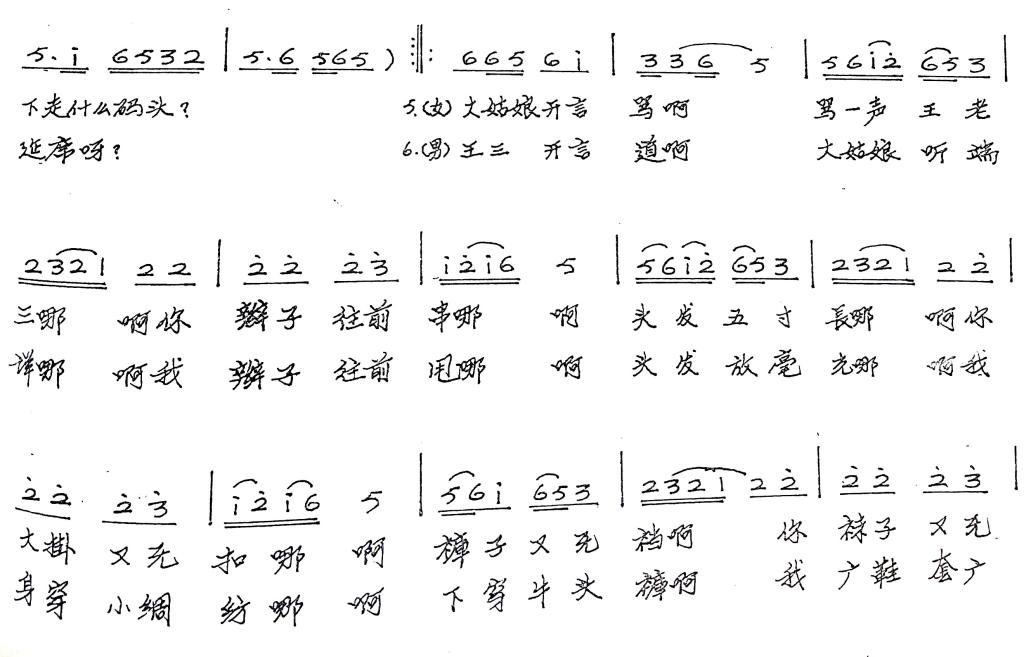 5·i 6532 | 5·6 565 ) :‖: 665 6i | 336 5 | 56i2 653 |
下走什么码头? 5.(女)大姑娘开言 骂啊 骂一声 王 老
延席呀? 6.(男)王三 开言 道啊 大姑娘 听 端
2321 22 | 22 23 | i2i6 5 | 56i2 653 | 2321 22 |
三哪 啊你 辫子 往前 串哪 啊 头发 五寸 長哪 啊你
详哪 啊我 辫子 往前 甩哪 啊 头发 放亮 光哪 啊我
22 23 | i2i6 5 | 56i 653 | 2321 22 | 22 23 |
大掛 又无 扣哪 啊 裤子又无 裆啊 你 袜子 又无
身穿 小綢 纺哪 啊 下穿牛头 裤啊 我 广鞋 套广